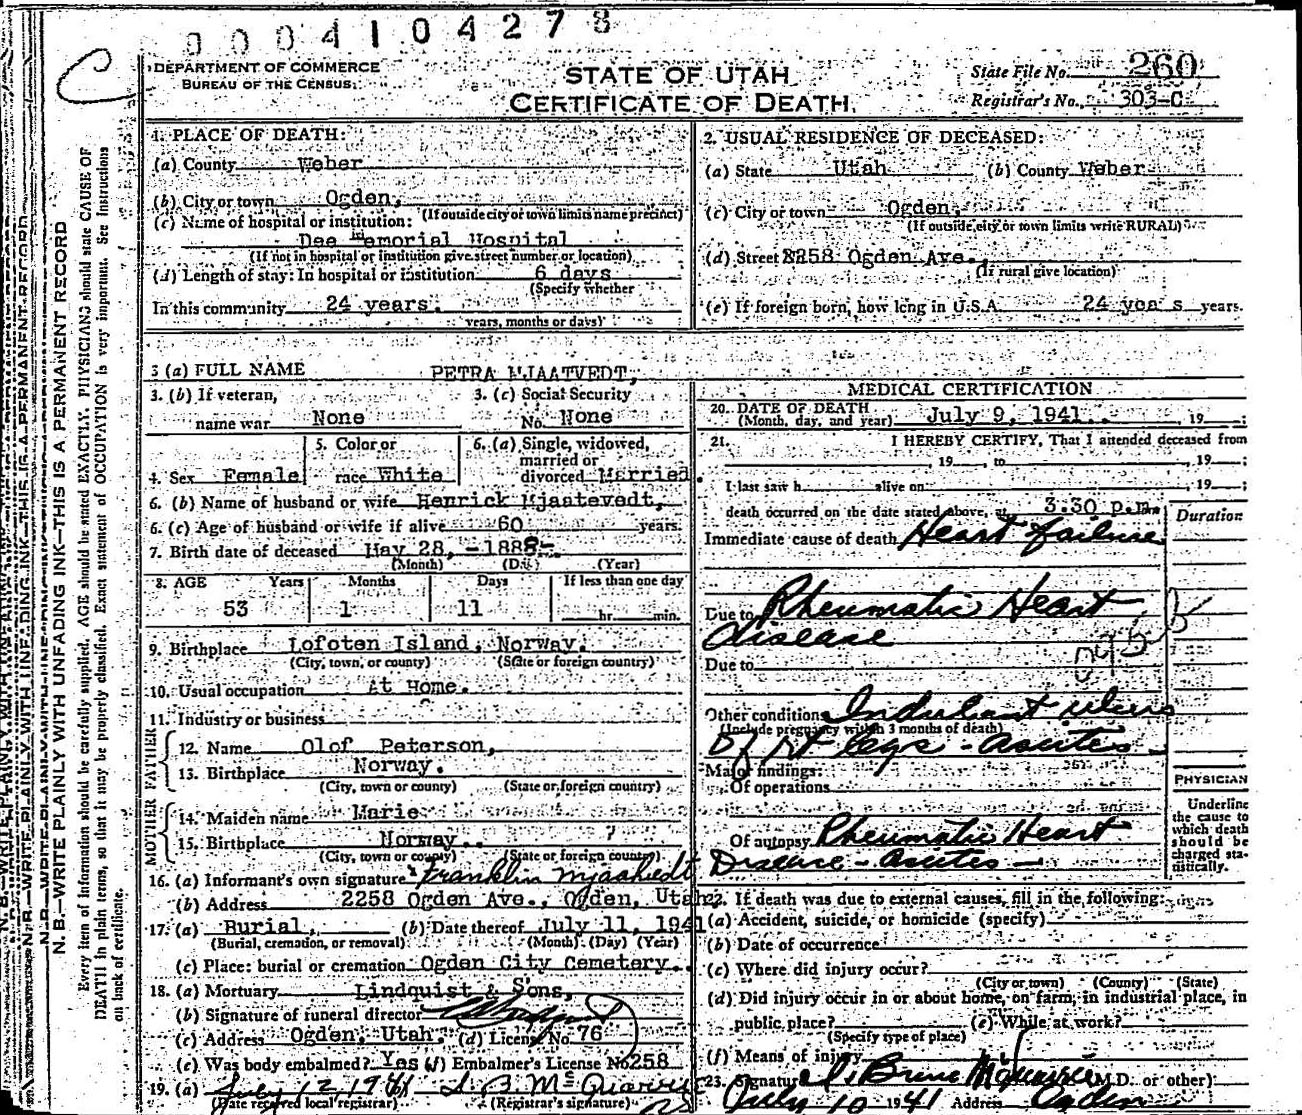 0004104278
C
DEPARTMENT OF COMMERCE
BUREAU OF THE CENSUS
STATE OF UTAH
CERTIFICATE OF DEATH
State File No. 260
Registrar's No. 303-C
N. B.—WRITE PLAINLY WITH UNFADING INK—THIS IS A PERMANENT RECORD
Every item of information should be carefully supplied. AGE should be stated EXACTLY. PHYSICIANS should state CAUSE OF
DEATH in plain terms, so that it may be properly classified. Exact statement of OCCUPATION is very important. See Instructions
on back of certificate.
1. PLACE OF DEATH:
(a) County Weber
(b) City or town Ogden,
(If outside city or town limits name precinct)
(c) Name of hospital or institution:
Dee Memorial Hospital
(If not in hospital or institution give street number or location)
(d) Length of stay: In hospital or institution 6 days
(Specify whether
In this community 24 years.
years, months or days)
2. USUAL RESIDENCE OF DECEASED:
(a) State Utah (b) County Weber
(c) City or town Ogden,
(If outside city or town limits write RURAL)
(d) Street 2258 Ogden Ave.,
(If rural give location)
(e) If foreign born, how long in U.S.A. 24 yea s years.
3 (a) FULL NAME PETRA MJAATVEDT,
3. (b) If veteran,
name war None
3. (c) Social Security
No. None
4. Sex Female
5. Color or
race White
6. (a) Single, widowed,
married or
divorced Married
6. (b) Name of husband or wife Henrick Mjaatevedt,
6. (c) Age of husband or wife if alive 60 years.
7. Birth date of deceased May 28, -1888-
(Month) (Day) (Year)
8. AGE Years Months Days If less than one day
53 1 11 hr. min.
9. Birthplace Lofoten Island, Norway.
(City, town, or county) (State or foreign country)
10. Usual occupation At Home.
11. Industry or business
FATHER
12. Name Olof Peterson,
13. Birthplace Norway.
(City, town or county) (State or foreign country)
MOTHER
14. Maiden name Marie
15. Birthplace Norway. ?
(City, town or county) (State or foreign country)
16. (a) Informant's own signature Franklin Mjaatvedt
(b) Address 2258 Ogden Ave., Ogden, Utah
17. (a) Burial, (b) Date thereof July 11, 1941
(Burial, cremation, or removal) (Month) (Day) (Year)
(c) Place: burial or cremation Ogden City Cemetery.
18. (a) Mortuary Lindquist & Sons,
(b) Signature of funeral director
(c) Address Ogden, Utah. (d) License No. 76
(e) Was body embalmed? Yes (f) Embalmer's License No. 258
19. (a) July 12 1941
(Date received local registrar) (Registrar's signature)
MEDICAL CERTIFICATION
20. DATE OF DEATH
(Month, day, and year) July 9, 1941. , 19 ;
21. I HEREBY CERTIFY, That I attended deceased from
, 19 , to , 19 ;
I last saw h alive on , 19 ;
death occurred on the date stated above, at 3:30 p.m.
Duration
Immediate cause of death Heart failure
Due to Rheumatic Heart
disease
Due to
Other conditions Indolent ulcers
(Include pregnancy within 3 months of death)
of rt legs - ascites -
Major findings:
Of operations
Of autopsy Rheumatic Heart
Disease - ascites -
PHYSICIAN
Underline
the cause to
which death
should be
charged sta-
tistically.
22. If death was due to external causes, fill in the following:
(a) Accident, suicide, or homicide (specify)
(b) Date of occurrence
(c) Where did injury occur?
(City or town) (County) (State)
(d) Did injury occur in or about home, on farm, in industrial place, in
public place? (e) While at work?
(Specify type of place)
(f) Means of injury
23. Signature McQuarrie (M.D. or other)
July 10 1941 Address Ogden